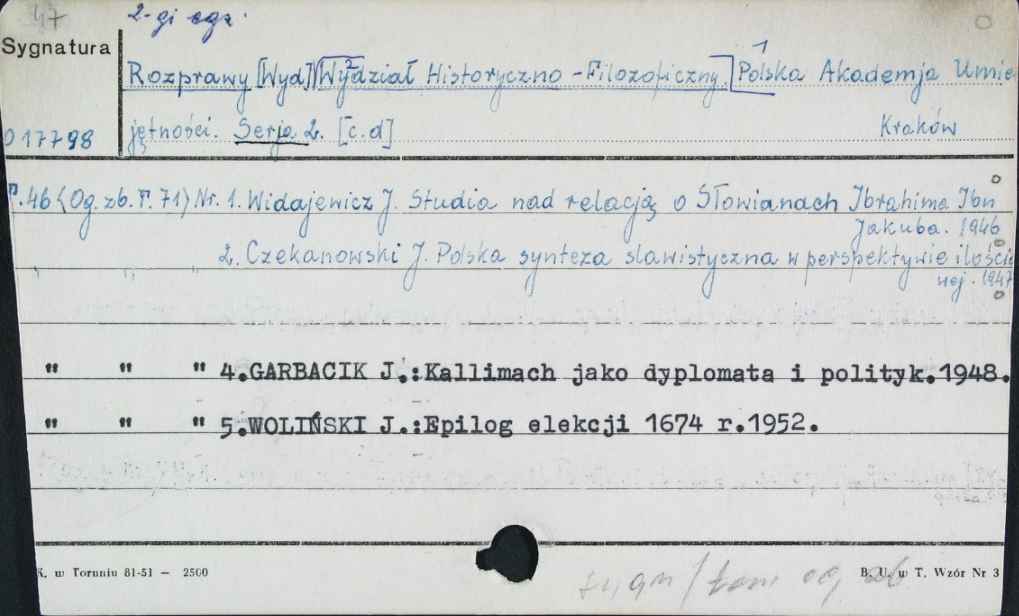 47 2-gi egz.
Sygnatura
1
Rozprawy [Wyd] [Wydział Historyczno-Filozoficzny.] Polska Akademja Umie-
2
017798 jętności. Serja 2. [c.d] Kraków
T.46 (Og. zb. T. 71) Nr. 1. Widajewicz J. Studia nad relacją o Słowianach Ibrahima Ibn
Jakuba. 1946
" " 2. Czekanowski J. Polska synteza slawistyczna w perspektywie ilościo
wej. 1947
" " " 4.GARBACIK J.:Kallimach jako dyplomata i polityk.1948.
" " " 5.WOLIŃSKI J.:Epilog elekcji 1674 r.1952.
K. w Toruniu 81-51 — 2500
B. U. w T. Wzór Nr 3
sygn/tom og zb